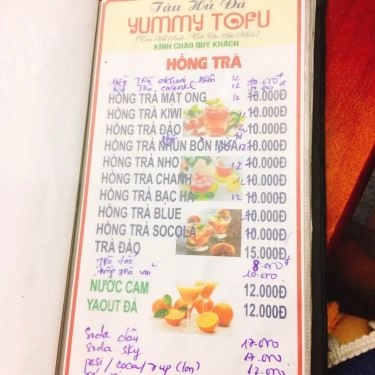 Tàu Hủ Đá
YUMMY TOFU
KÍNH CHÀO QUÝ KHÁCH
HỒNG TRÀ
12 10.000đ
12
HỒNG TRÀ MẬT ONG 12 10.000Đ
HỒNG TRÀ KIWI 12 10.000Đ
HỒNG TRÀ ĐÀO 12 10.000Đ
HỒNG TRÀ NHÚN BỐN MÙA 12 10.000Đ
HỒNG TRÀ NHO 12 10.000Đ
HỒNG TRA CHANH 12 10.000Đ
HỒNG TRÀ BẠC HÀ 12 10.000Đ
HỒNG TRÀ BLUE 12 10.000Đ
HỒNG TRÀ SOCOLA 12 10.000Đ
TRÀ ĐÀO 15.000Đ
Trà đào 8.000đ
Hồng trà vải 10.000
NƯỚC CAM 12.000Đ
YAOUT ĐÁ 12.000Đ
Soda dâu 17.000
Soda sky 17.000
pesi / coca / 7 up (lon) 12.000